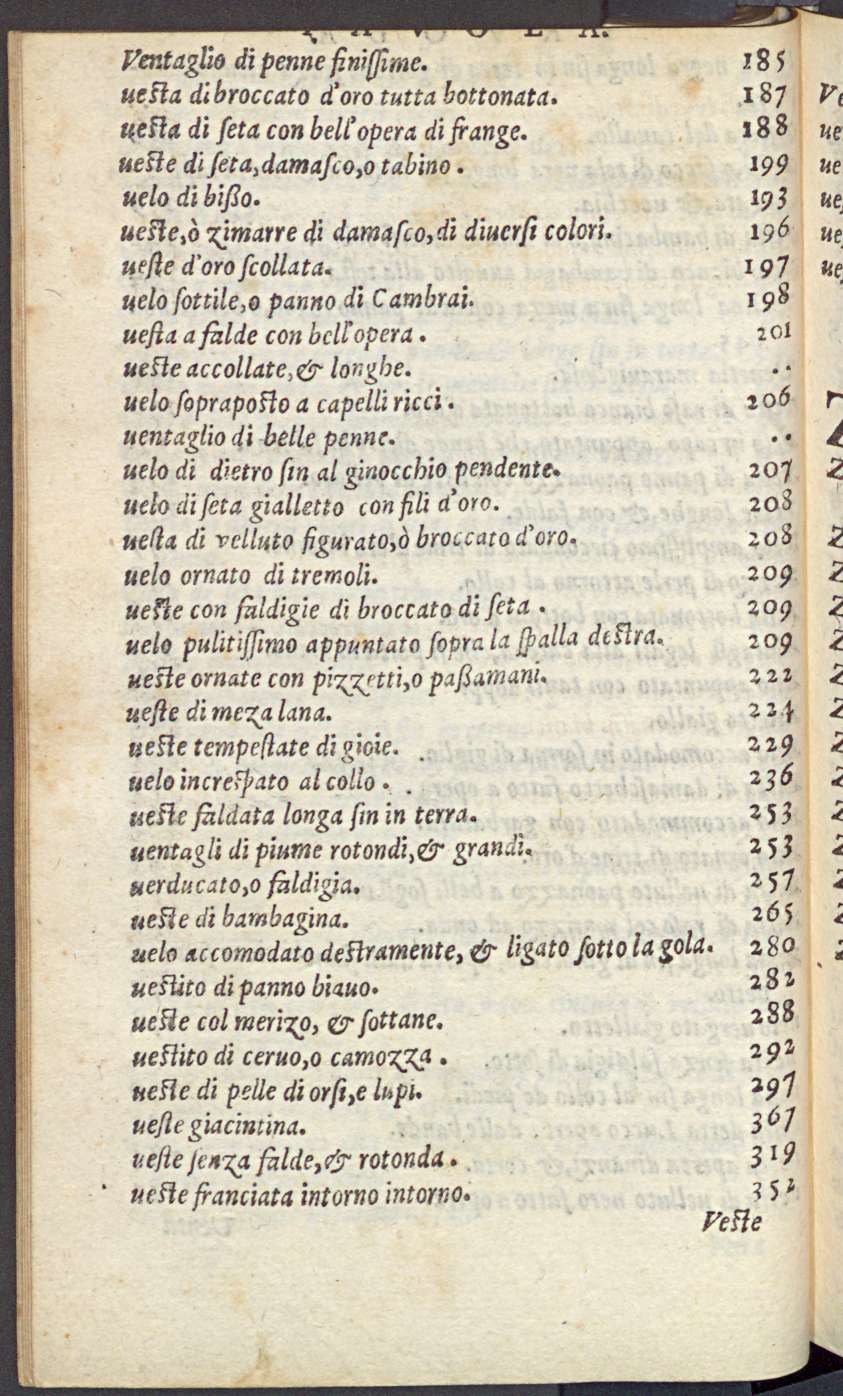 TAVOLA.
Ventaglio di penne finiſſime. 185
ueſta di broccato d'oro tutta bottonata. 187
ueſta di ſeta con bell'opera di frange. 188
ueſte di ſeta,damaſco,o tabino . 199
uelo di bißo. 193
ueſte,ò zimarre di damaſco,di diuerſi colori. 196
ueſte d'oro ſcollata. 197
uelo ſottile,o panno di Cambrai. 198
ueſta a falde con bell'opera . 201
ueſte accollate,& longhe. ..
uelo ſoprapoſto a capelli ricci . 206
uentaglio di belle penne. ..
uelo di dietro ſin al ginocchio pendente. 207
uelo di ſeta gialletto con fili d'oro. 208
ueſta di velluto figurato,ò broccato d'oro. 208
uelo ornato di tremoli. 209
ueſte con faldigie di broccato di ſeta . 209
uelo pulitiſſimo appuntato ſopra la ſpalla deſtra. 209
ueſte ornate con pizzetti,o paßamani. 222
ueſte di meza lana. 224
ueſte tempeſtate di gioie. 229
uelo increſpato al collo . 236
ueſte faldata longa ſin in terra. 253
uentagli di piume rotondi,& grandi. 253
uerducato,o faldigia. 257
ueſte di bambagina. 265
uelo accomodato deſtramente, & ligato ſotto la gola. 280
ueſtito di panno biauo. 282
ueſte col merizo, & ſottane. 288
ueſtito di ceruo,o camozza . 292
ueſte di pelle di orſi,e lupi. 297
ueſte giacintina. 367
ueſte ſenza falde,& rotonda . 319
ueſte franciata intorno intorno. 352
Veſte